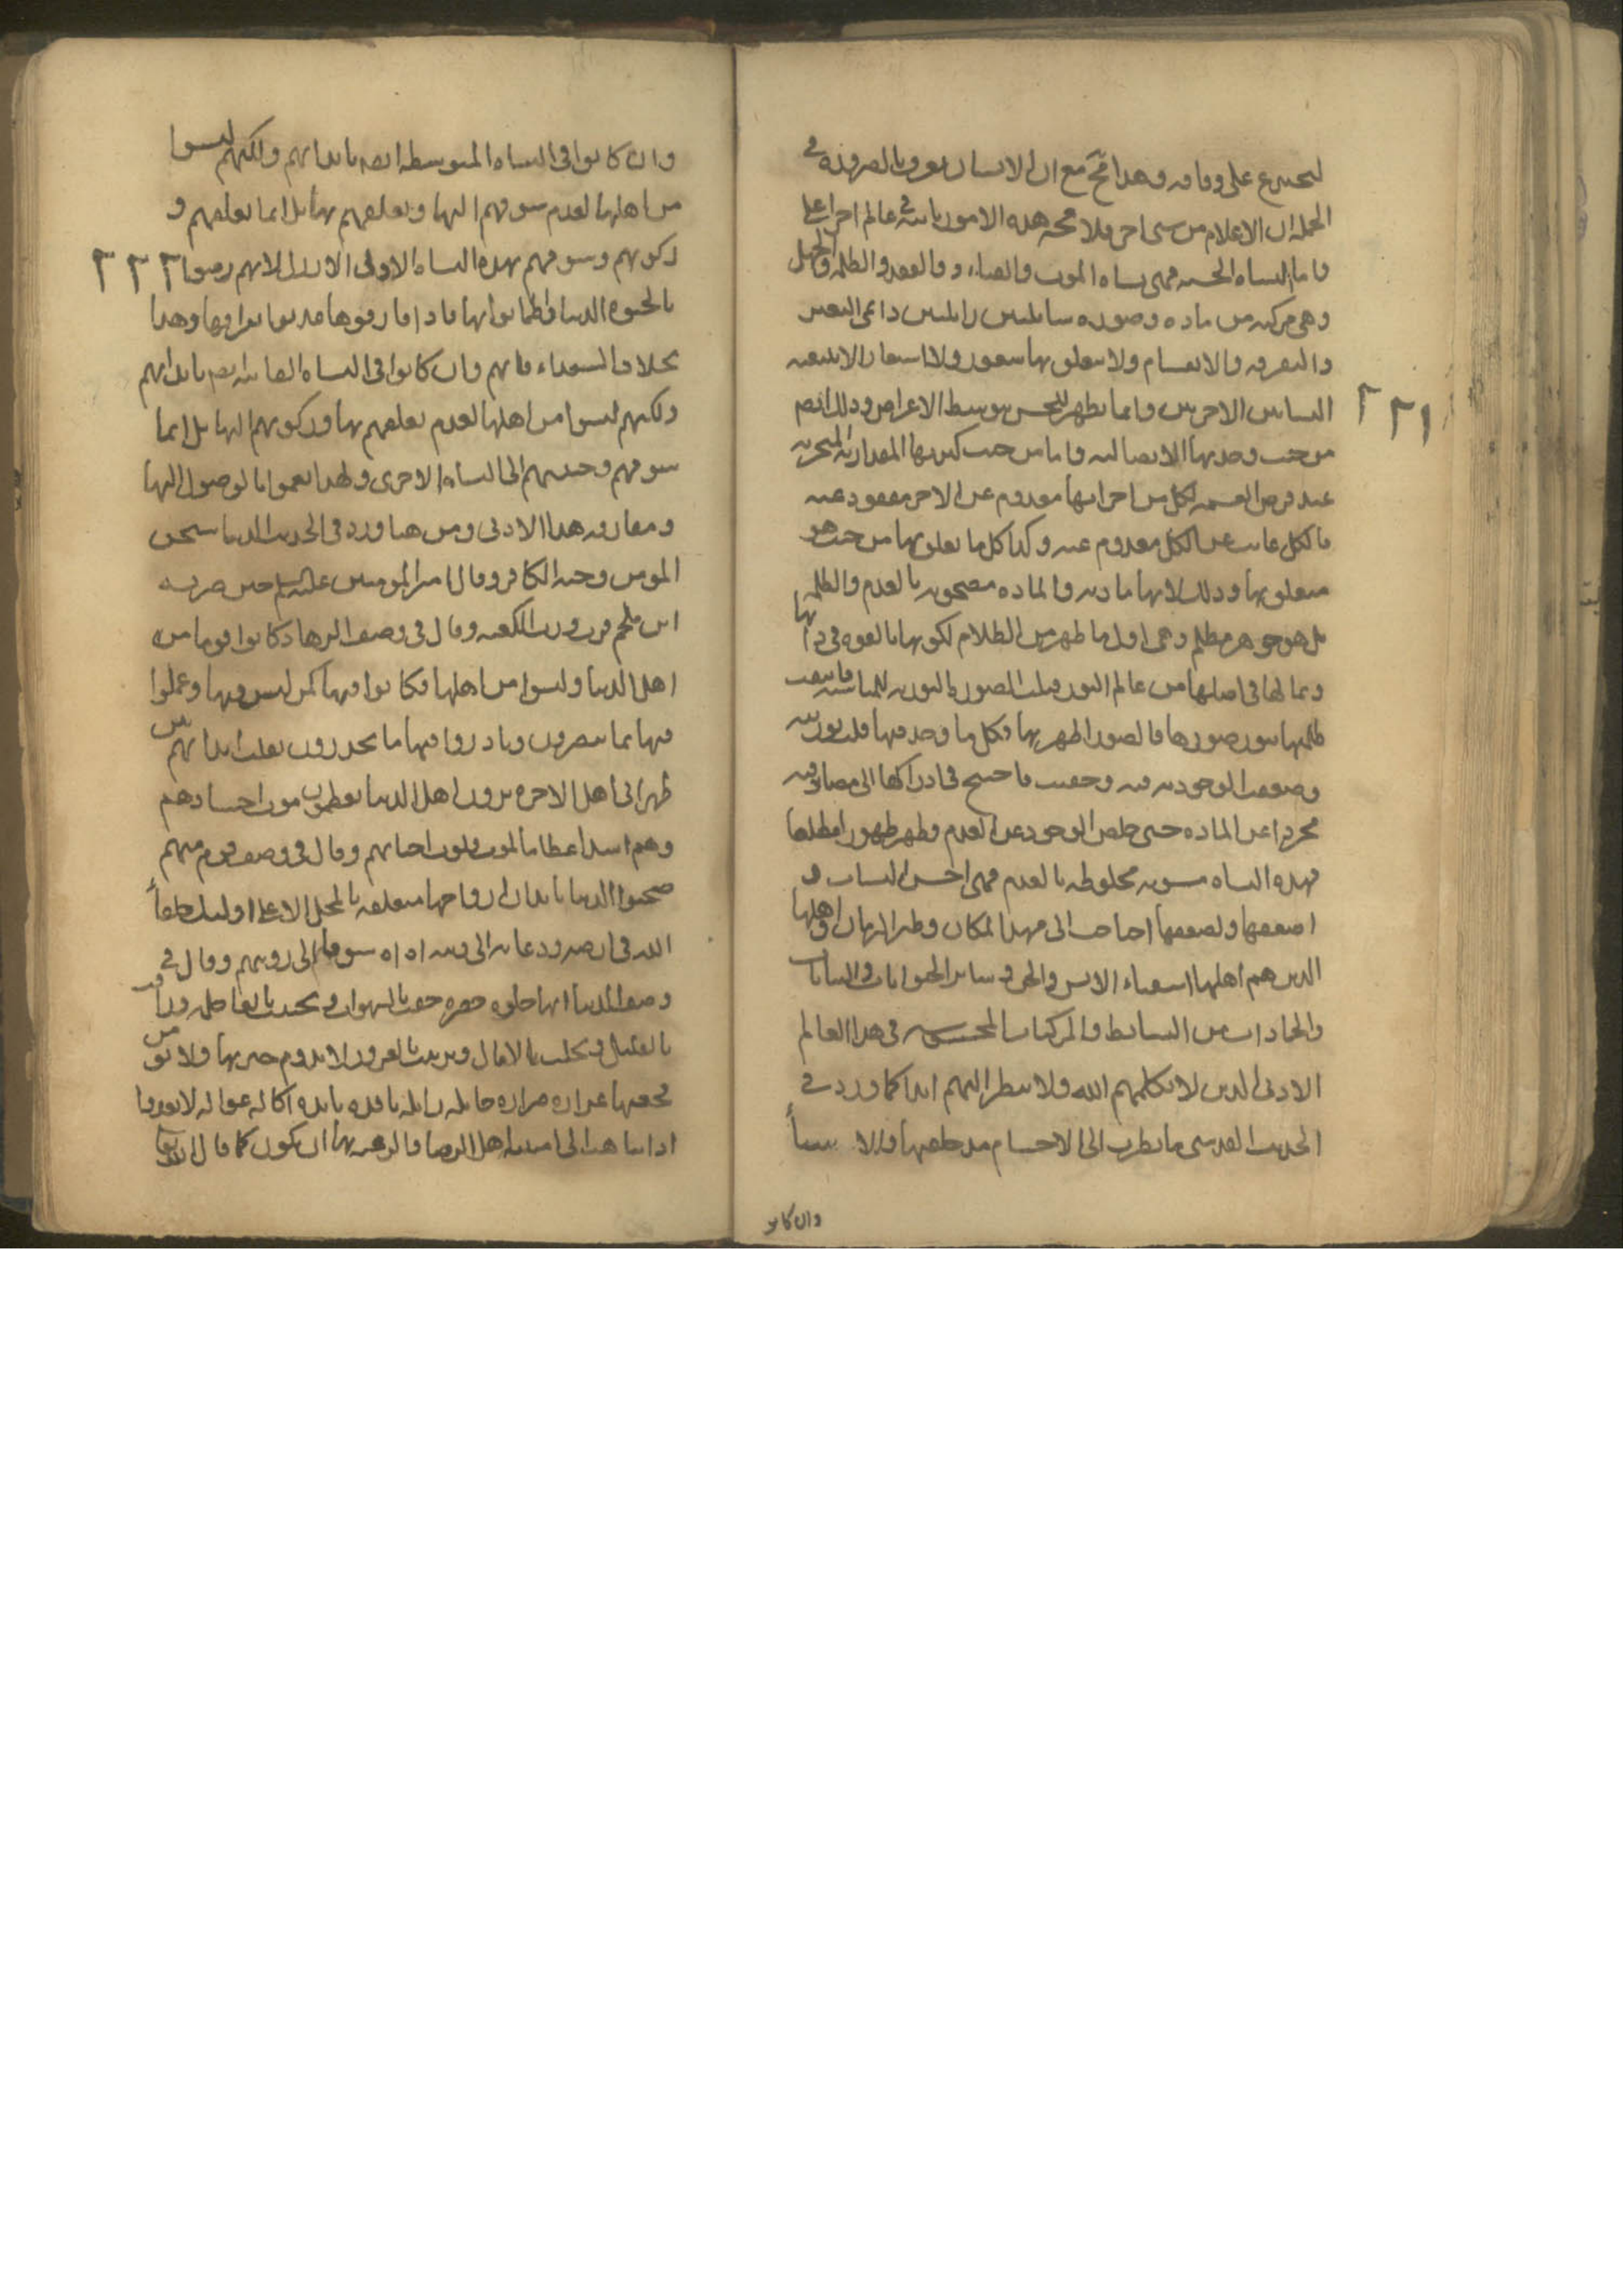 على وفاقه وهذا مع ان الانسان بالضرورة في
الجملة ان الاعلام من شيء اخر فلا هذه الامور في عالم اخر اعلى
فاما النشاة الحسية فهي نشاة الموت والفساد والفقد والظلمة والجهل
وهي مركبة من مادة وصورة سائلتين زائلتين دائمي التغير
والتفرقة والانقسام ولا يتعلق بها شعور ولا اشعار الا بتبعية
النشاتين الاخريين وانما يظهر للحس بتوسط الاعراض وذلك ايضا
من حيث وحدتها الاتصالية واما من حيث كثرتها المقدارية المتجزية
عند فرض القسمة فكل من اجزائها معدوم عن الاخر مفقود عنه
فالكل غائب عن الكل معدوم عنه وكذا كل ما تعلق بها من حيث هو
متعلق بها وذلك لانها مادية والمادة مصحوبة بالعدم والظلمة
بل هو جوهر مظلم وهي اول ما ظهر من الظلام لكونها بالقوة في ذاتها
وبما لها في اصلها من عالم النور قبلت الصور النورية للمناسبة فانتفت
ظلمتها بنور صورها فالصور اظهرتها فكل ما وجد فيها قلت نوريته
وضعفت الوجودية فيه وخفيت فاحتيج في ادراكها الى
مجردا عن المادة حتى خلص الوجود عن العدم وظهر ظهورا مطلقا
فهذه النشاة مشوبة مخلوطة بالعدم فهي اخس النشات و
اضعفها ولضعفها احتاجت الى مهد المكان وظئر الزمان واهلها
الذين هم اهلها اشقياء الانس والجن وسائر الحيوانات والنباتات
والجمادات من البسائط والمركبات المحسوسة في هذا العالم
الادنى الذين لا يكلمهم الله ولا ينظر اليهم ابدا كما ورد في
الحديث القدسي ما نظرت الى الاجسام مذ خلقتها والاشقياء
وان كانو
٢٢١
وان كانوا في النشاة المتوسطة ايضا بابدانهم ولكنهم ليسوا
من اهلها لعدم شوقهم اليها وتعلقهم بها بل انما تعلقهم و
ركونهم وشوقهم بهذه النشاة الاولى الارذل لانهم رضوا
بالحيوة الدنيا واطمانوا بها فاذا فارقوها عذبوا بفراقها وهذا
بخلاف السعداء فانهم وان كانوا في النشاة الفانية بابدانهم
ولكنهم ليسوا من اهلها لعدم تعلقهم بها وركونهم اليها بل انما
شوقهم وحنينهم الى النشاة الاخرى ولهذا نعموا بالوصول اليها
ومفارقة هذا الادنى ومن هنا ورد في الحديث الدنيا سجن
المومن وجنة الكافر وقال امير المومنين عليه السلم حين ضربه
ابن ملجم فزت ورب الكعبة وقال في وصف الزهاد كانوا قوما من
اهل الدنيا وليسوا من اهلها فكانوا فيها كمن ليس منها وعملوا
فيها بما يبصرون وبادروا فيها ما يحذرون تقلب ابدانهم بين
ظهراني اهل الاخرة يرون اهل الدنيا يعظمون موت اجسادهم
وهم اشد اعظاما لموت قلوب احيائهم وقال في وصف قوم منهم
صحبوا الدنيا بابدان ارواحها متعلقة بالمحل الاعلى اولئك خلفاء
الله في ارضه ودعاته الى دينه اه اه شوقا الى رؤيتهم وقال في
وصف الدنيا انها حلوة خضرة حفت بالشهوات وتحببت بالعاجلة وراقت
بالقليل وتحلت بالامال وتزينت بالغرور لا يدوم خيرها ولا تؤمن
فجعتها غرارة ضرارة حائلة زائلة نافدة بائدة اكالة غوالة لا تعدوا
اذا تناهت الى امنية اهل الرضا والرغبة بها ان تكون كما قال الله تعالى
٢٢٢